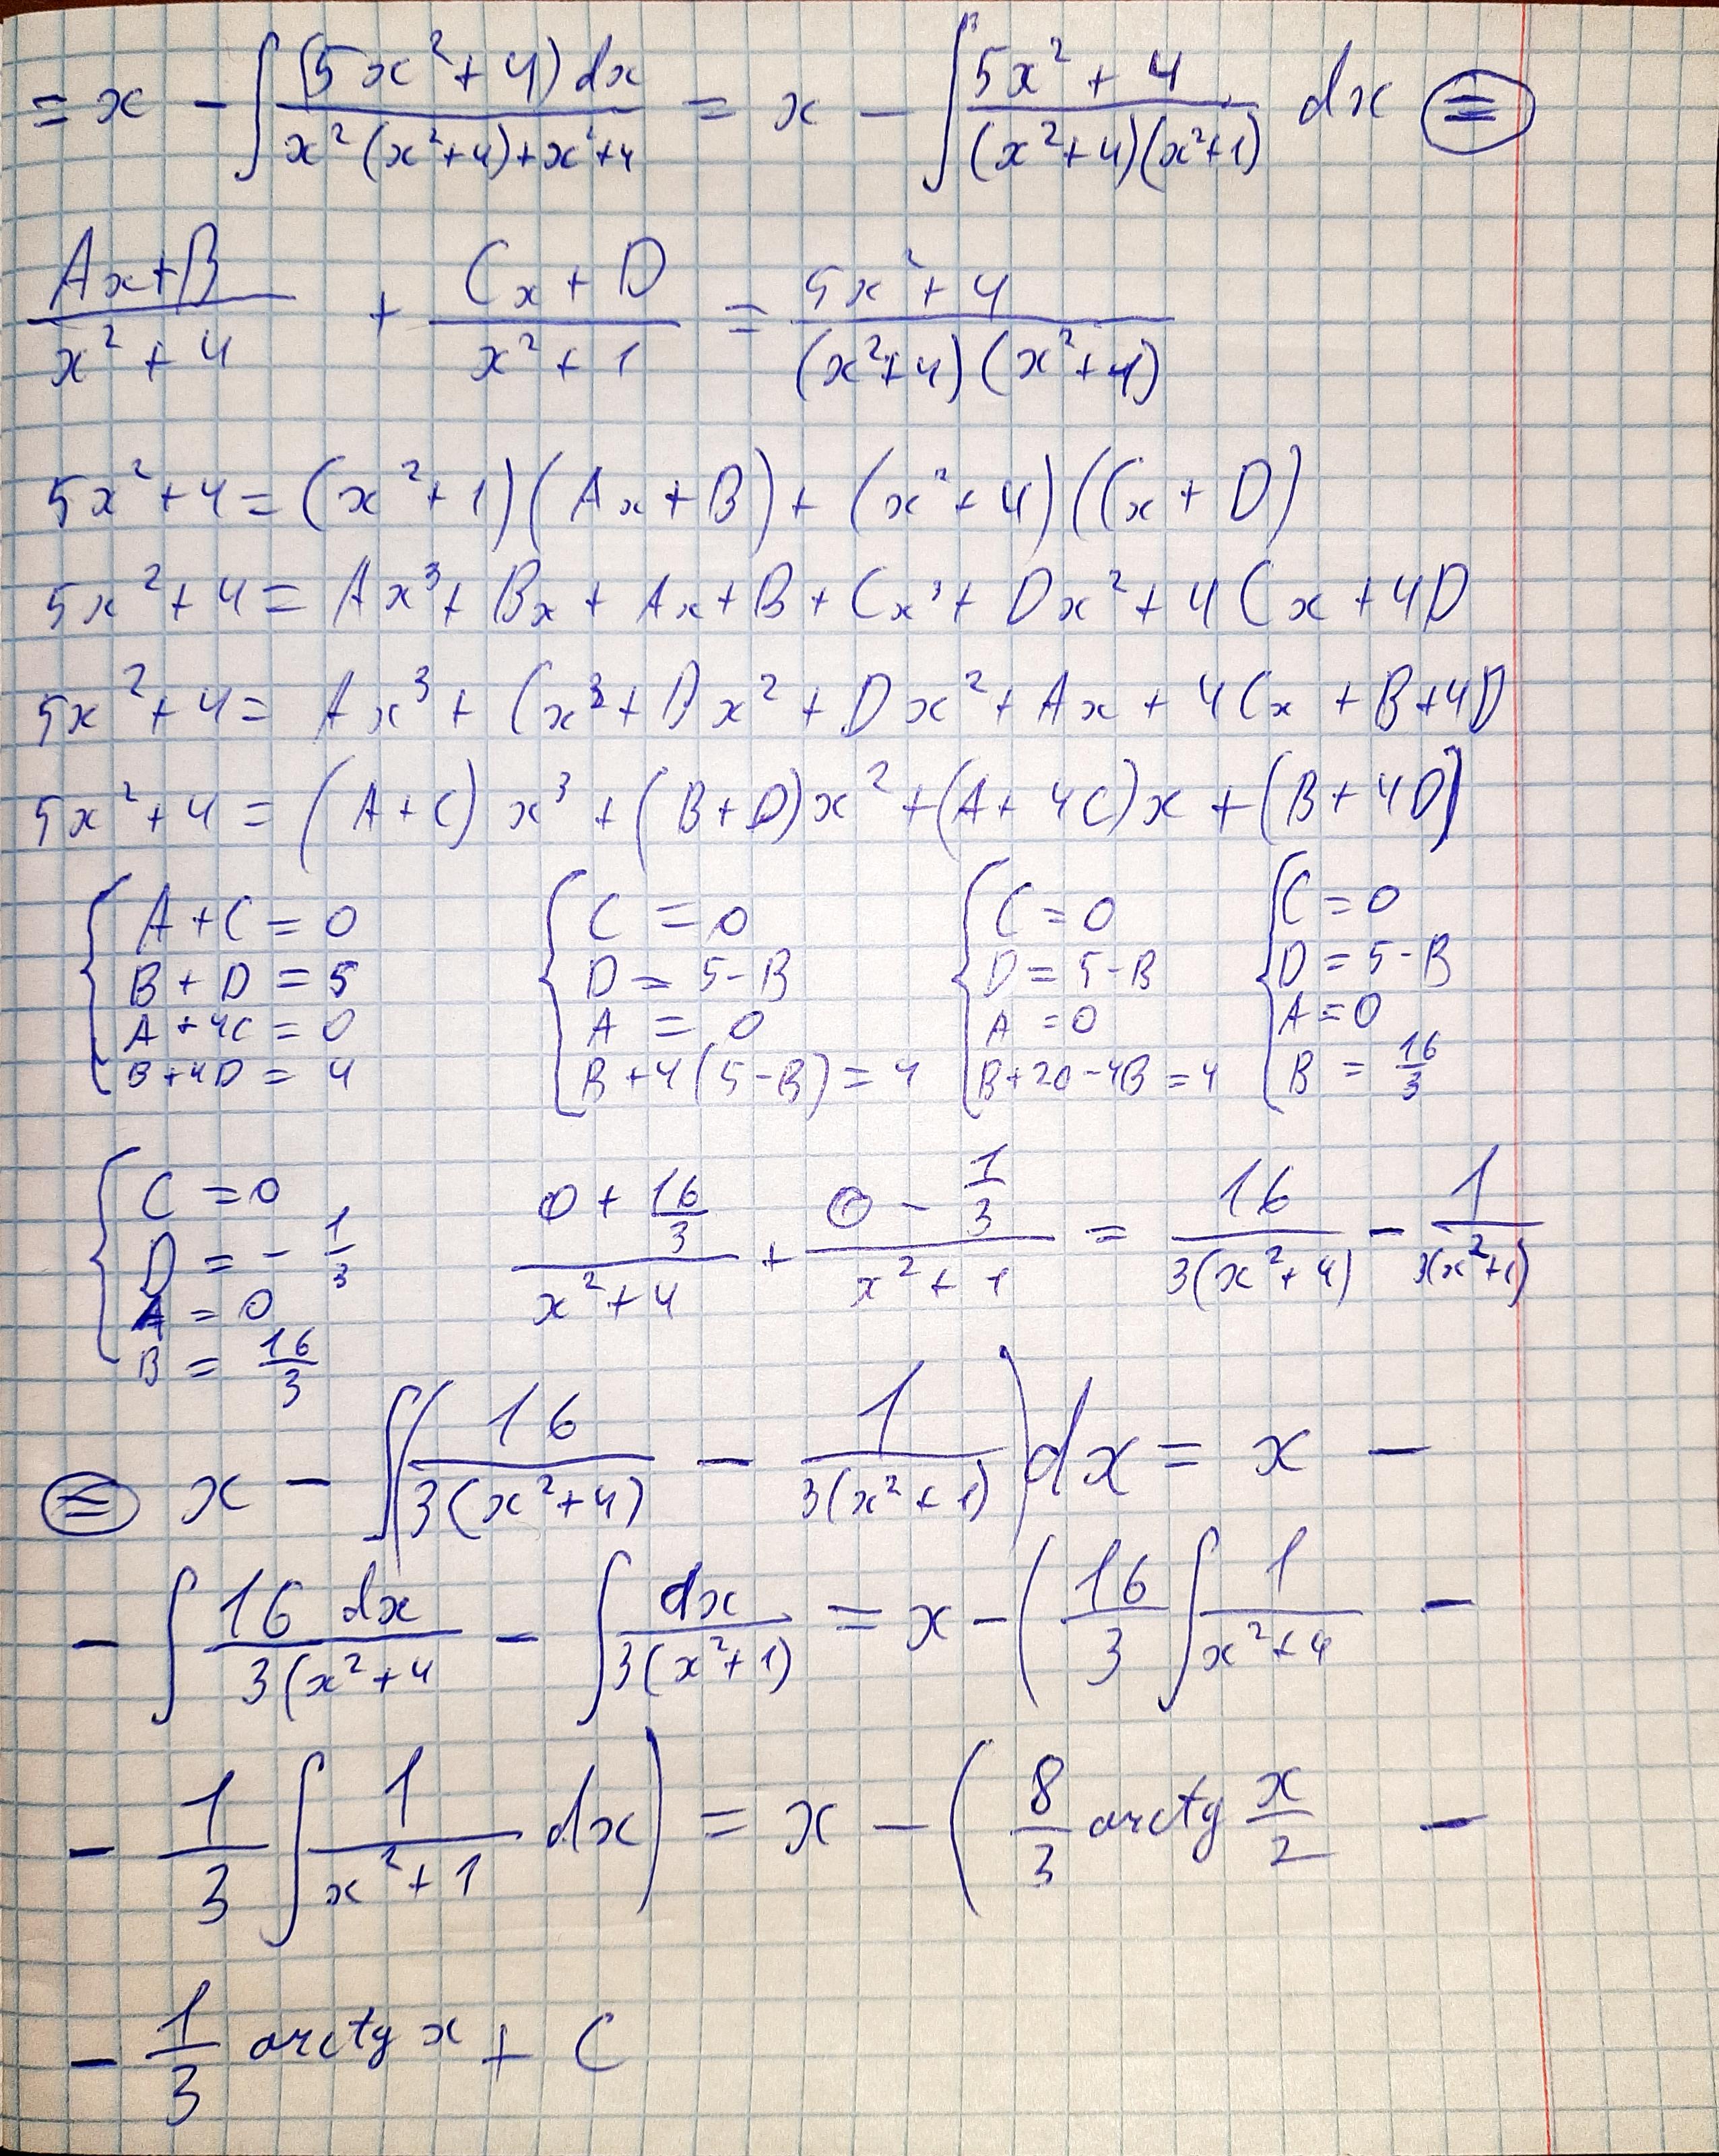 = x - ∫ (5x² + 4) dx / (x² (x²+4) + x²+4) = x - ∫ (5x² + 4) / ((x²+4)(x²+1)) dx ⊜
(Ax+B) / (x² + 4) + (Cx + D) / (x² + 1) = (5x² + 4) / ((x²+4)(x²+1))
5x² + 4 = (x² + 1)(Ax + B) + (x² + 4)(Cx + D)
5x² + 4 = Ax³ + Bx + Ax + B + Cx³ + Dx² + 4Cx + 4D
5x² + 4 = Ax³ + Cx³ + Bx² + Dx² + Ax + 4Cx + B + 4D
5x² + 4 = (A+C) x³ + (B+D) x² + (A + 4C) x + (B + 4D)
{ A + C = 0 { C = 0 { C = 0 { C = 0
B + D = 5 D = 5 - B D = 5 - B D = 5 - B
A + 4C = 0 A = 0 A = 0 A = 0
B + 4D = 4 B + 4(5 - B) = 4 B + 20 - 4B = 4 B = 16/3
{ C = 0
D = - 1/3 (0 + 16/3) / (x² + 4) + (0 - 1/3) / (x² + 1) = 16 / (3(x² + 4)) - 1 / (3(x²+1))
A = 0
B = 16/3
⊜ x - ∫ (16 / (3(x² + 4)) - 1 / (3(x² + 1))) dx = x -
- ∫ 16 dx / (3(x² + 4 - ∫ dx / (3(x²+1)) = x - ( 16/3 ∫ 1 / (x² + 4) -
- 1/3 ∫ 1 / (x² + 1) dx ) = x - ( 8/3 arctg x/2 -
- 1/3 arctg x + C